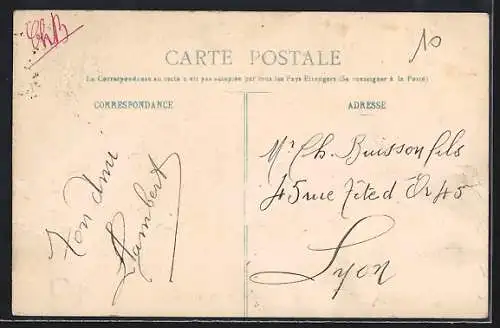 ChB
10
CARTE POSTALE
La Correspondance au recto n'est pas acceptée par tous les Pays Etrangers (Se renseigner à la Poste)
CORRESPONDANCE
ADRESSE
Ton ami
Lambert
Mr Ch. Buisson fils
45 rue Tête d'Or 45
Lyon